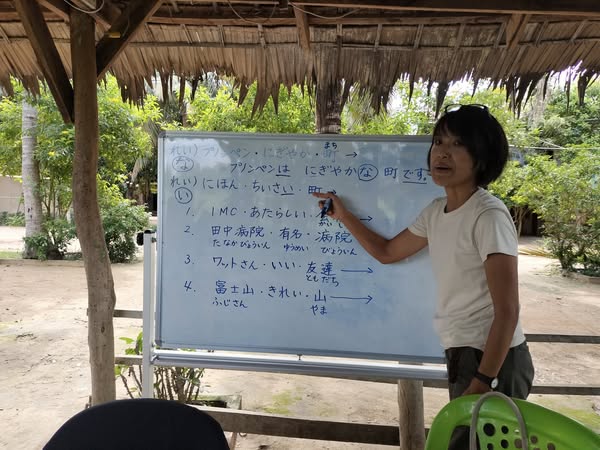 まち
れい)プノンペン・にぎやか・町→
な プノンペンは にぎやかな 町です。
れい)にほん・ちいさい・町→
い
1. IMC・あたらしい・
2. 田中病院・有名・病院
たなかびょういん ゆうめい びょういん
3. ワットさん・いい・友達→
ともだち
4. 富士山・きれい・山→
ふじさん やま